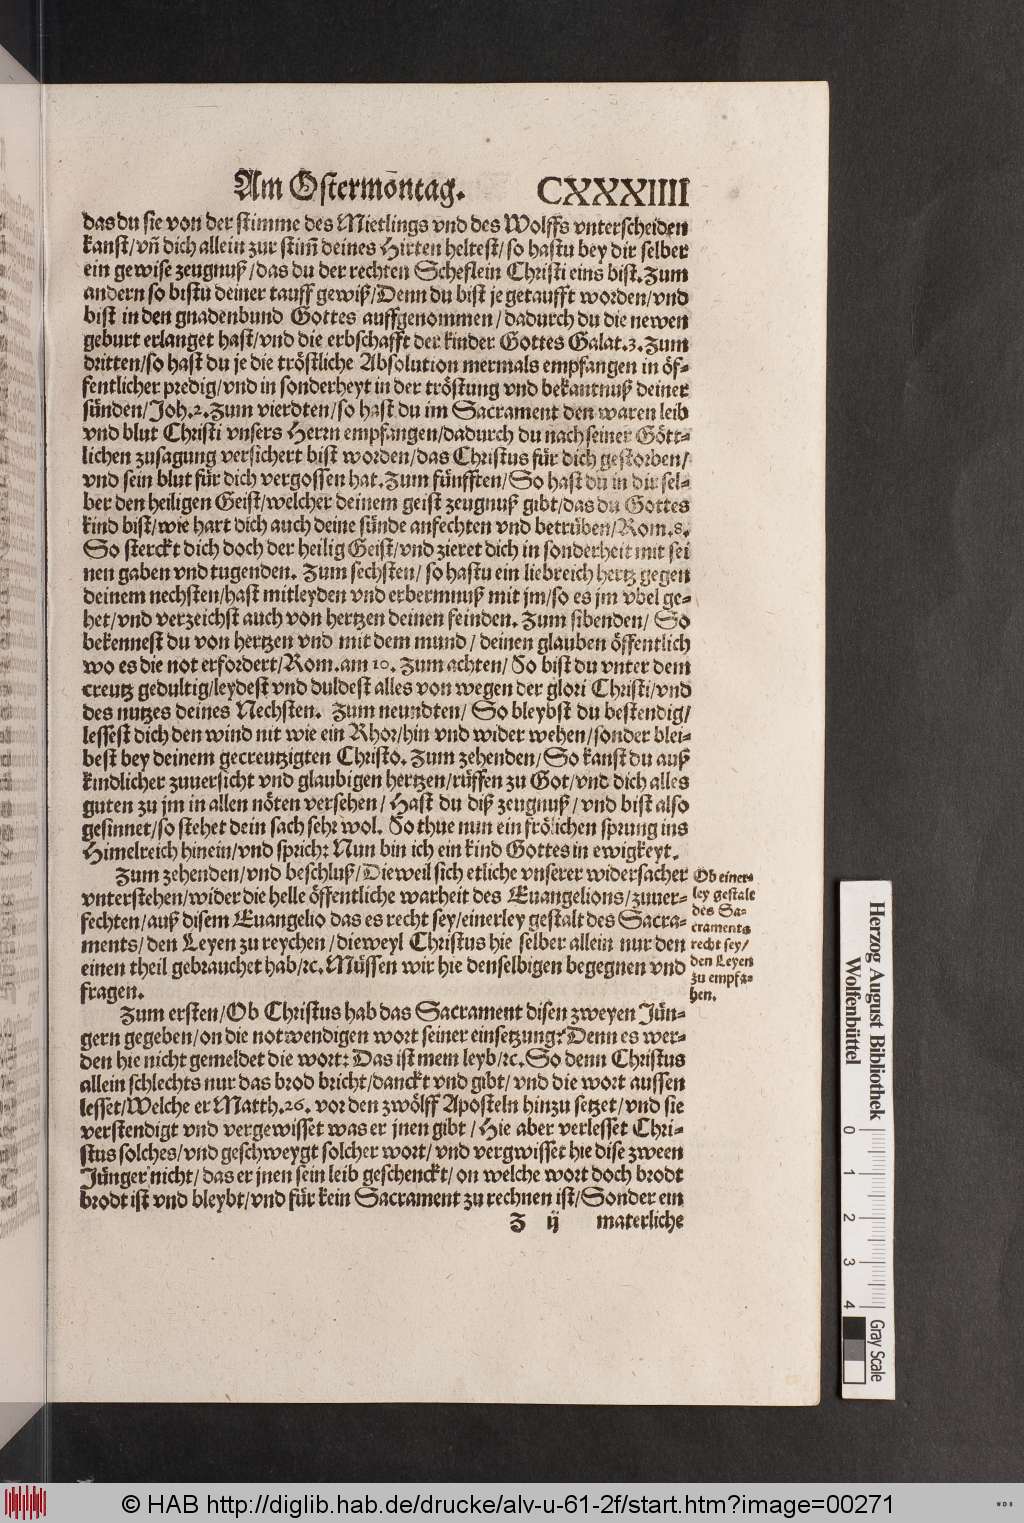 Am Ostermontag. CXXXIIII
das du sie von der stimme des Mietlings vnd des Wolffs vnterscheiden
kanst/vñ dich allein zur stim̃ deines Hirten heltest/so hastu bey dir selber
ein gewise zeugnuß/das du der rechten Scheflein Christi eins bist. Zum
andern so bistu deiner tauff gewiß/Denn du bist je getaufft worden/vnd
bist in den gnadenbund Gottes auffgenommen/dadurch du die newen
geburt erlanget hast/vnd die erbschafft der kinder Gottes Galat.3. Zum
dritten/so hast du je die tröstliche Absolution mermals empfangen in öf-
fentlicher predig/vnd in sonderheyt in der tröstung vnd bekantnuß deiner
sünden/Joh.2. Zum vierdten/so hast du im Sacrament den waren leib
vnd blut Christi vnsers Herrn empfangen/dadurch du nach seiner Gött-
lichen zusagung versichert bist worden/das Christus für dich gestorben/
vnd sein blut für dich vergossen hat. Zum fünfften/So hast du in dir sel-
ber den heiligen Geist/welcher deinem geist zeugnuß gibt/das du Gottes
kind bist/wie hart dich auch deine sünde anfechten vnd betrüben/Rom.8.
So sterckt dich doch der heilig Geist/vnd zieret dich in sonderheit mit sei
nen gaben vnd tugenden. Zum sechsten/ so hastu ein liebreich hertz gegen
deinem nechsten/hast mitleyden vnd erbermnuß mit jm/so es jm vbel ge-
het/vnd verzeichst auch von hertzen deinen feinden. Zum sibenden/ So
bekennest du von hertzen vnd mit dem mund/ deinen glauben öffentlich
wo es die not erfordert/Rom.am 10. Zum achten/ So bist du vnter dem
creutz gedultig/leydest vnd duldest alles von wegen der glori Christi/vnd
des nutzes deines Nechsten. Zum neundten/ So bleybst du bestendig/
lessest dich den wind nit wie ein Rhor/hin vnd wider wehen/sonder blei-
best bey deinem gecreutzigten Christo. Zum zehenden/So kanst du auß
kindlicher zuuersicht vnd glaubigen hertzen/rüffen zu Got/vnd dich alles
guten zu jm in allen nöten versehen/ Hast du diß zeugnuß/vnd bist also
gesinnet/so stehet dein sach sehr wol. So thue nun ein frölichen sprung ins
Himelreich hinein/vnd sprich: Nun bin ich ein kind Gottes in ewigkeyt.
Zum zehenden/vnd beschluß/Dieweil sich etliche vnserer widersacher
vnterstehen/wider die helle öffentliche warheit des Euangelions/zuuer-
fechten/auß disem Euangelio das es recht sey/einerley gestalt des Sacra-
ments/den Leyen zu reychen/dieweyl Christus hie selber allein nur den
einen theil gebrauchet hab/rc. Müssen wir hie denselbigen begegnen vnd
fragen.
Ob einer-
ley gestalt
des Sa-
craments
recht sey/
den Leyen
zu empfa-
hen.
Zum ersten/Ob Christus hab das Sacrament disen zweyen Jün-
gern gegeben/on die notwendigen wort seiner einsetzung? Denn es wer-
den hie nicht gemeldet die wort: Das ist mein leyb/rc. So denn Christus
allein schlechts nur das brod bricht/danckt vnd gibt/vnd die wort aussen
lesset/Welche er Matth.26. vor den zwölff Aposteln hinzu setzet/vnd sie
verstendigt vnd vergewisset was er jnen gibt/Hie aber verlesset Chri-
stus solches/vnd geschweygt solcher wort/vnd vergwisset hie dise zween
Jünger nicht/das er jnen sein leib geschenckt/on welche wort doch brodt
brodt ist vnd bleybt/vnd für kein Sacrament zu rechnen ist/Sonder ein
Z ij materliche
Herzog August Bibliothek
Wolfenbüttel
0 1 2 3 4
Gray Scale
© HAB http://diglib.hab.de/drucke/alv-u-61-2f/start.htm?image=00271